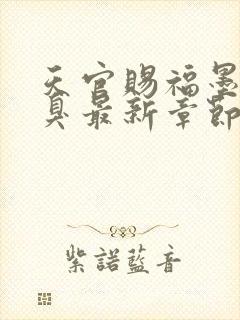 天官賜福墨
臭最新章節
紫諾藍音